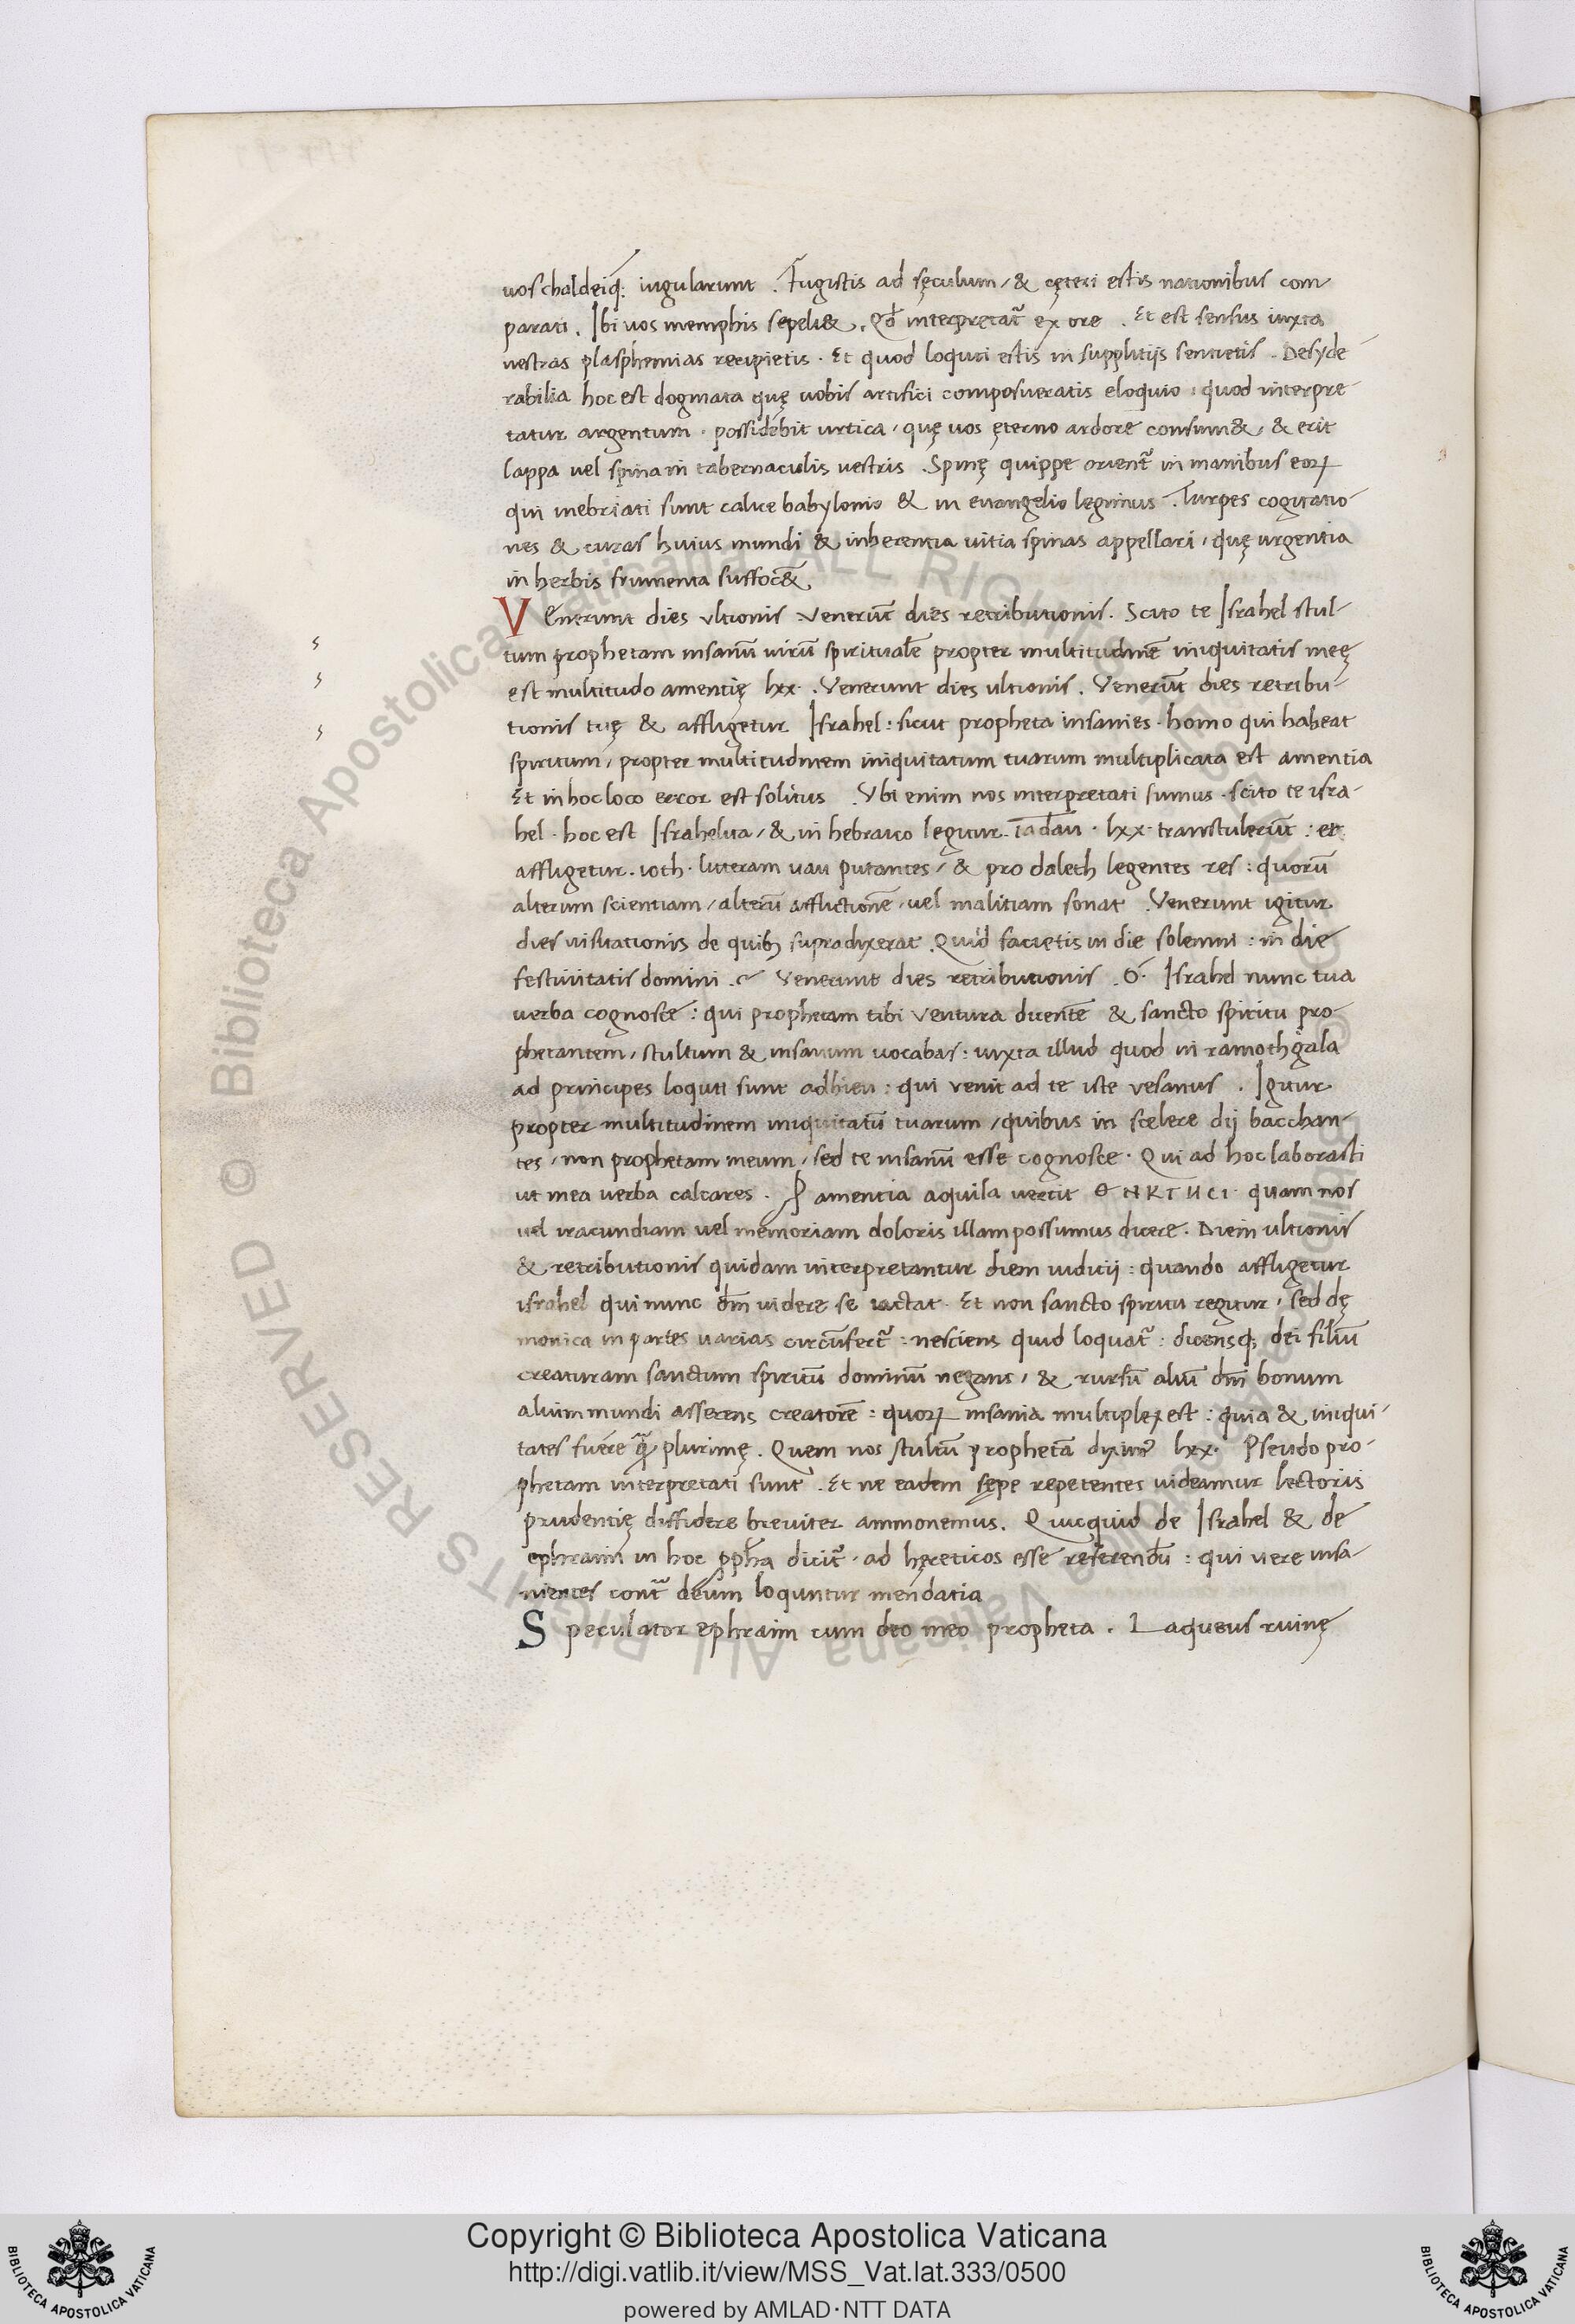 uos chaldeiq; iugularunt . Fugistis ad sęculum / & cęteri estis nationibus com-
parati . Ibi uos memphis sepeli& . Qd̄ interpretat᷑ ex ore . Et est sensus iuxta
uestras plasphemias recipietis . Et quod loquti estis in supplitijs sentietis . Desyde-
rabilia hoc est dogmata quę uobis artifici composueratis eloquio : quod interpre-
tatur argentum . possidebit urtica / quę uos ęterno ardore consum& / & erit
lappa uel spina in tabernaculis uestris . Spinę quippe orient᷑ in manibus eoꝝ
qui inebriati sunt calice babylonio & in euangelio legimus . Turpes cogitatio-
nes & curas huius mundi & inherentia uitia spinas appellari / quę urgentia
in herbis frumenta suffoc&
VEnerunt dies vltionis veneriūt dies retributionis . Scito te Israhel stul-
tum prophetam insanū uirū spiritualē propter multitudinē iniquitatis meę
est multitudo amentię lxx . Venerunt dies ultionis . Veneriūt dies retribu-
tionis tuę & affligetur Israhel : sicut propheta insanies . homo qui habeat
spiritum / propter multitudinem iniquitatum tuarum multiplicata est amentia
Et in hoc loco error est solitus . Vbi enim nos interpretati sumus . scito te isra-
hel . hoc est Israhel ua / & in hebraico legitur . Iadau . lxx . transtulerūt : et
affligetur . ioth . literam uau putantes / & pro daleth legentes res : quorū
alterum scientiam / alterū afflictionē / uel malitiam sonat . Venerunt igitur
dies uisitationis de quib; supradixerat . Quid facietis in die solemni : in die
festiuitatis domini . Venerunt dies retributionis . O . Israhel nunc tua
uerba cognosce : qui prophetam tibi ventura dicentē & sancto spiritu pro-
phetantem / stultum & insanum uocabas : iuxta illud quod in ramoth gala
ad principes loquti sunt ad hieu : qui venit ad te iste vesanus . Igitur
propter multitudinem iniquitatū tuarum / quibus in scelere dij bacchan-
tes / non prophetam meum / sed te insanū esse cognosce . Qui ad hoc laborasti
ut mea uerba calcares . ꝓ amentia aquila uertit ΘΝΚΤΗCΙ . quam nos
uel iracundiam uel memoriam doloris illam possumus dicere . Diem ultionis
& retributionis quidam interpretantur diem iudicij : quando affligetur
israhel qui nunc dm̄ uidere se iactat . Et non sancto spiritu regitur / sed dę
monica in partes uarias circūfert᷑ : nesciens quid loquat᷑ : dicensq; dei filiū
creaturam sanctum spiritū dominū negans / & rursū aliū dm̄ bonum
alium mundi asserens creatorē : quoꝝ insania multiplex est : quia & iniqui-
tates fuere plurimę . Quem nos stultū prophetā diximꝰ lxx . Pseudo pro-
phetam interpretati sunt . Et ne eadem sępe repetentes uideamur lectoris
prudentię diffidere breuiter ammonemus . Quicquid de Israhel & de
ephraim in hoc ꝓph̄a dicit᷑ . ad hęreticos esse referendū : qui uere insa-
nientes contᵃ deum loquntur mendatia
Speculator ephraim cum deo meo propheta . Laqueus ruinę
Copyright © Biblioteca Apostolica Vaticana
http://digi.vatlib.it/view/MSS_Vat.lat.333/0500
powered by AMLAD·NTT DATA
BIBLIOTECA APOSTOLICA VATICANA
BIBLIOTECA APOSTOLICA VATICANA